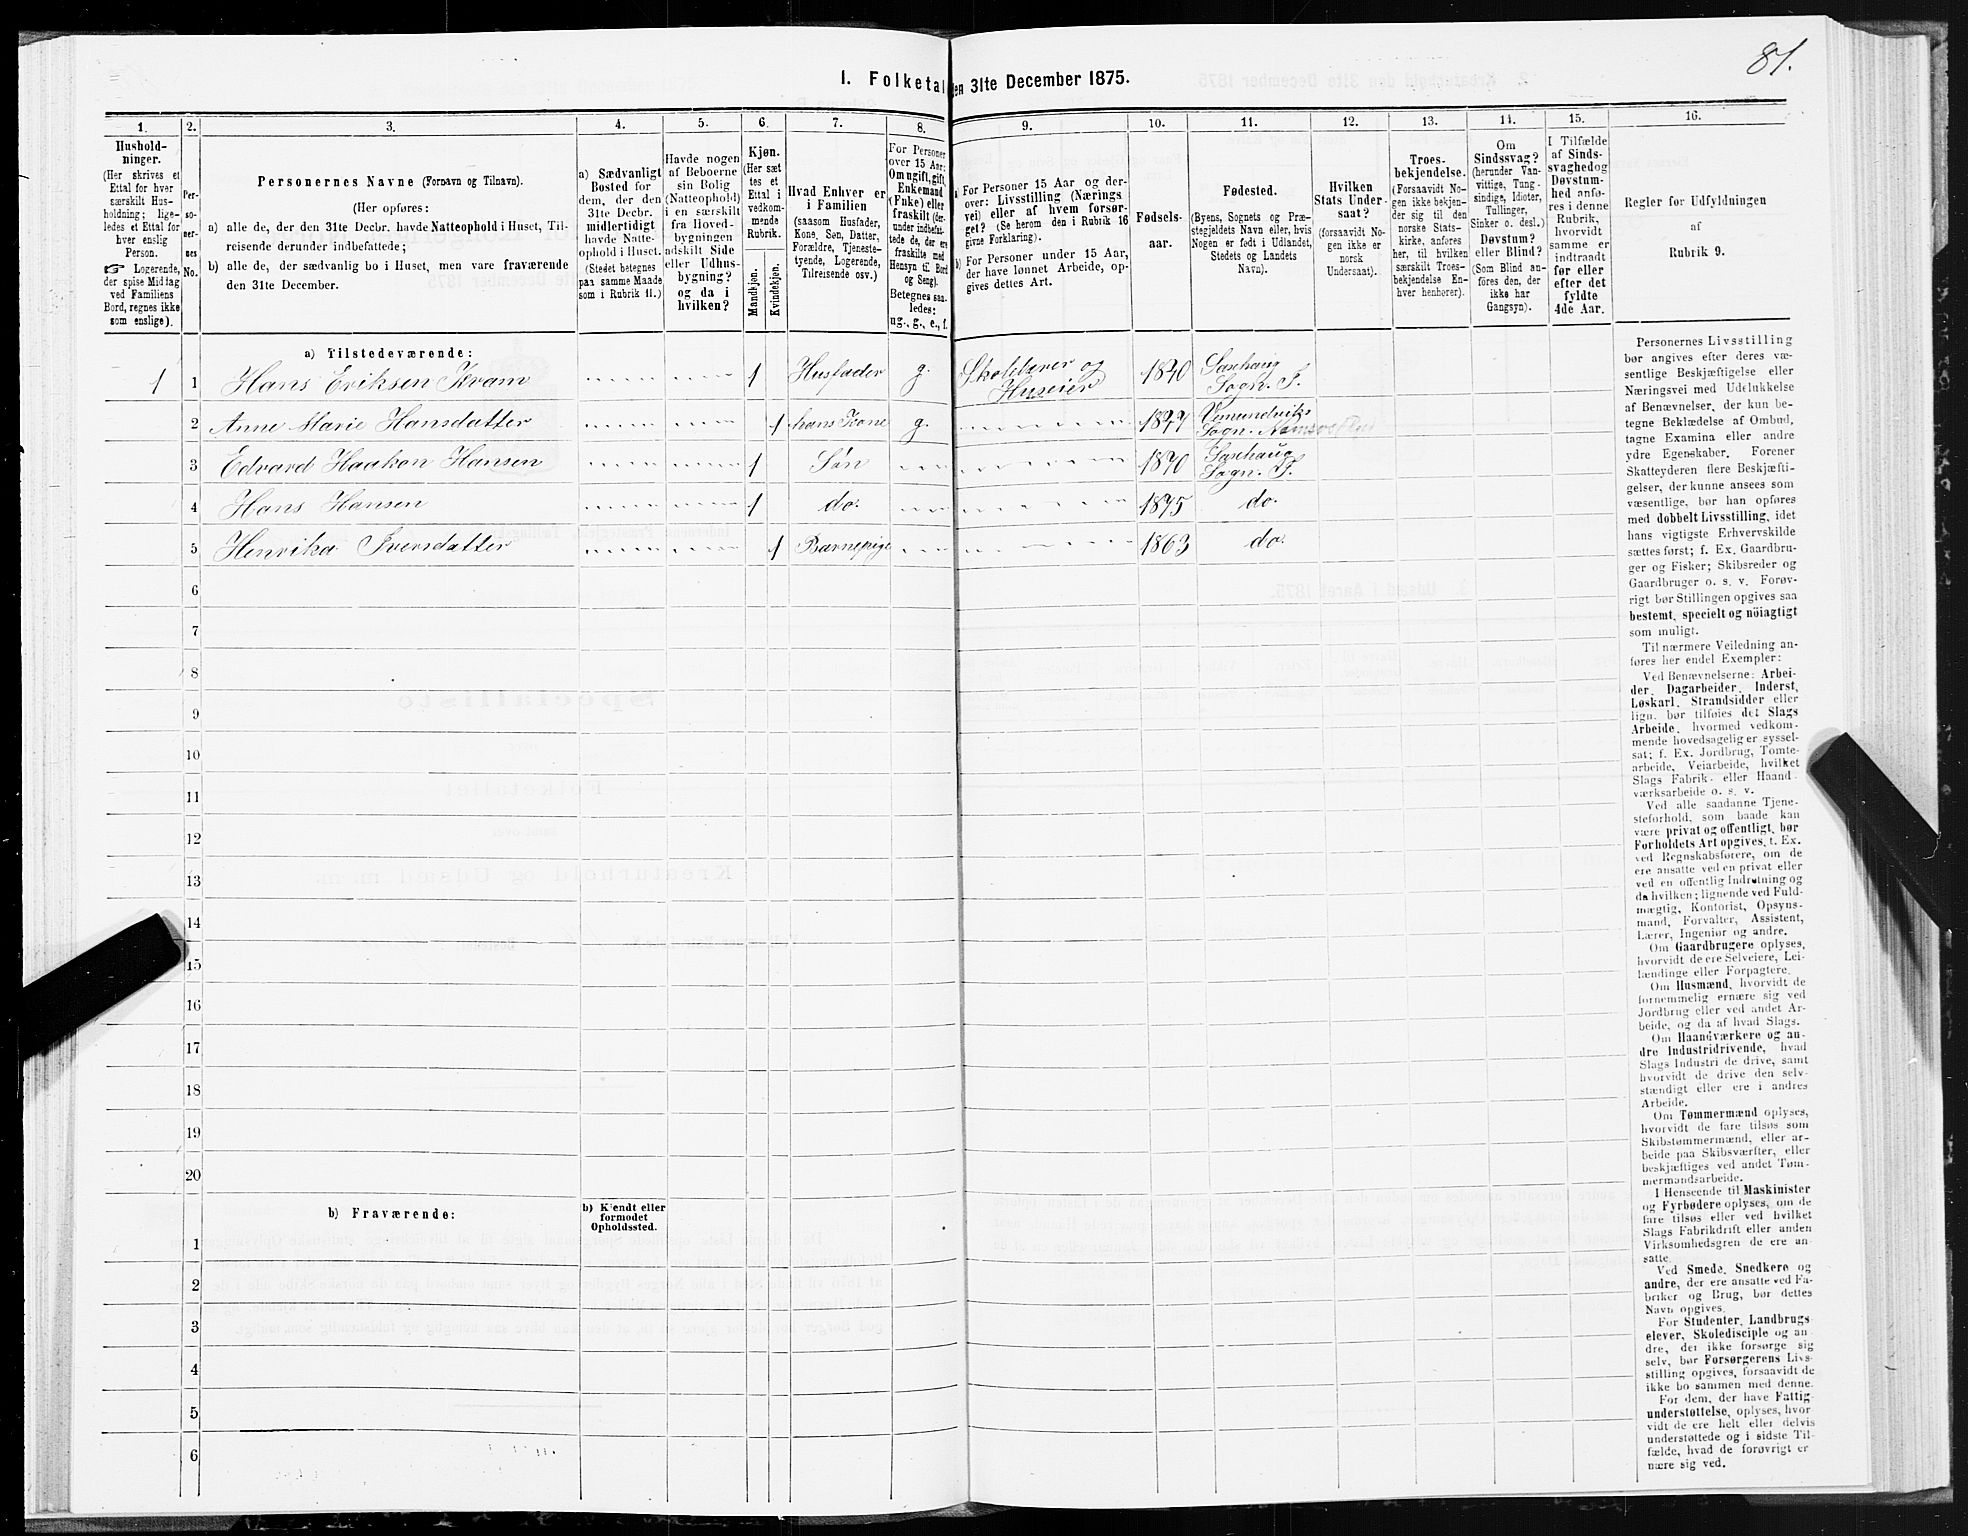 81.
I. Folketal
den 31te December 1875.
1.
2.
3.
4.
5.
6.
7.
8.
9.
10.
11.
12.
13.
14.
15.
16.
Hushold-
ninger.
(Her skrives et
Ettal for hver
særskilt Hus-
holdning; lige-
ledes et Ettal for
hver enslig
Person.
☞ Logerende,
der spise Middag
ved Familiens
Bord, regnes ikke
som enslige).
Per-
so-
ner-
nes
No.
Personernes Navne (Fornavn og Tilnavn).
(Her opføres:
a) alle de, der den 31te Decbr. havde Natteophold i Huset, Til-
reisende derunder indbefattede;
b) alle de, der sædvanlig bo i Huset, men vare fraværende
den 31te December.
a) Sædvanligt
Bosted for
dem, der den
31te Decbr.
midlertidigt
havde Natte-
ophold i Huset.
(Stedet betegnes
paa samme Maade
som i Rubrik 11.)
Havde nogen
af Beboerne
sin Bolig
(Natteophold)
i en særskilt
fra Hoved-
bygningen
adskilt Side
eller Udhus-
bygning?
og da i
hvilken?
Kjøn.
(Her sæt
tes et
Ettal i
vedkom-
mende
Rubrik.
Mandkjøn.
Kvindekjøn.
Hvad Enhver er
i Familien
(saasom Husfader,
Kone, Søn, Datter,
Forældre, Tjeneste-
tyende, Logerende,
Tilreisende osv.)
For Personer
over 15 Aar:
Om ugift, gift,
Enkemand
(Enke) eller
fraskilt (der-
under indbefat-
tede de, der ere
fraskilte med
Hensyn til Bord
og Seng).
Betegnes saa-
ledes:
ug., g., e., f.
a For Personer 15 Aar og der-
over: Livsstilling (Nærings
vei) eller af hvem forsør-
get? (Se herom den i Rubrik 16
givne Forklaring).
b For Personer under 15 Aar,
der have lønnet Arbeide, op-
gives dettes Art.
Fødsels-
aar.
Fødested.
(Byens, Sognets og Præ-
stegjeldets Navn eller, hvis
Nogen er født i Udlandet,
Stedets og Landets
Navn).
Hvilken
Stats Under-
saat?
(forsaavidt No-
gen ikke er
norsk
Undersaat).
Troes-
bekjendelse.
(Forsaavidt No-
gen ikke bekjen-
der sig til den
norske Stats-
kirke, anføres
her, til hvilken
særskilt Troes-
bekjendelse En-
hver henhører).
Om
Sindssvag?
(herunder Van-
vittige, Tung-
sindige, Idioter,
Tullinger,
Sinker o. desl.)
Døvstum?
eller Blind?
(Som Blind an-
føres den, der
ikke har
Gangsyn).
I Tilfælde
af Sinds-
svaghed og
Døvstum-
hed anfø-
res i denne
Rubrik,
hvorvidt
samme er
indtraadt
før eller
efter det
fyldte
4de Aar.
Regler for Udfyldningen
af
Rubrik 9.
a) Tilstedeværende:
1 1 Hans Eriksen Kvam 1 Husfader g. Skolelærer og Huseier 1840 Saxhaug Sogn. T.
2 Anne Marie Hansdatter 1 hans Kone g. 1844 Vemundvik Sogn.
3 Edvard Haakon Hansen 1 Søn 1870 Saxhaug Sogn. T.
4 Hans Hansen 1 do. 1875 do.
5 Henrika Iversdatter 1 Barnepige 1863 do.
6
7
8
9
10
11
12
13
14
15
16
17
18
19
20
b) Fraværende:
b) Kjendt eller
formodet
Opholdssted.
1
2
3
4
5
6
Personernes Livsstilling
bør angives efter deres væ-
sentlige Beskjæftigelse eller
Næringsvei med Udelukkelse
af Benævnelser, der kun be-
tegne Beklædelse af Ombud,
tagne Examina eller andre
ydre Egenskaber. Forener
Skatteyderen flere Beskjæfti-
gelser, der kunne ansees som
væsentlige, bør han opføres
med dobbelt Livsstilling, idet
hans vigtigste Erhvervskilde
sættes først; f. Ex. Gaardbru-
ger og Fisker; Skibsreder og
Gaardbruger o. s. v. Forøv-
rigt bør Stillingen opgives saa
bestemt, specielt og nöiagtigt
som muligt.
Til nærmere Veiledning an-
føres her endel Exempler:
Ved Benævnelserne: Arbei-
der, Dagarbeider, Inderst,
Løskarl, Strandsidder eller
lign. bør tilføies det Slags
Arbeide, hvormed vedkom-
mende hovedsagelig er syssel-
sat; f. Ex. Jordbrug, Tomte-
arbeide, Veiarbeide, hvilket
Slags Fabrik- eller Haand-
værksarbeide o. s. v.
Ved alle saadanne Tjene-
steforhold, som baade kan
være privat og offentligt, bør
Forholdets Art opgives, f. Ex.
ved Regnskabsførere, om de
ere ansatte ved en privat eller
ved en offentlig Indretning og
da hvilken; lignende ved Fuld-
mægtig, Kontorist, Opsyns-
mand, Forvalter, Assistent,
Lærer, Ingeniør og andre.
Om Gaardbrugere oplyses,
hvorvidt de ere Selveiere, Lei-
lændinge eller Forpagtere.
Om Husmænd, hvorvidt de
fornemmelig ernære sig ved
Jordbrug eller ved andet Ar-
beide, og da af hvad Slags.
Om Haandværkere og an-
dre Industridrivende, hvad
Slags Industri de drive, samt
hvorvidt de drive den selv-
stændigt eller ere i andres
Arbeide.
Om Tømmermænd oplyses,
hvorvidt de fare tilsøs som
Skibstømmermænd, eller ar-
beide paa Skibsværfter, eller
beskjæftiges ved andet Tøm-
mermandsarbeide.
I Henseende til Maskinister
og Fyrbødere oplyses, om de
fare tilsøs eller ved hvilket
Slags Fabrikdrift eller anden
Virksomhedsgren de ere an-
satte.
Ved Smede, Snedkere og
andre, der ere ansatte ved Fa-
briker og Brug, bør dettes
Navn opgives.
For Studenter, Landbrugs
elever, Skoledisciple og an-
dre, der ikke forsørge sig
selv, bør Forsørgerens Livs-
stilling opgives, forsaavidt de
ikke bo sammen med denne.
For dem, der have Fattig
understøttelse, oplyses, hvor
vidt de ere helt eller delvis
understøttede og i sidste Til-
fælde, hvad de forøvrigt er
nære sig ved.